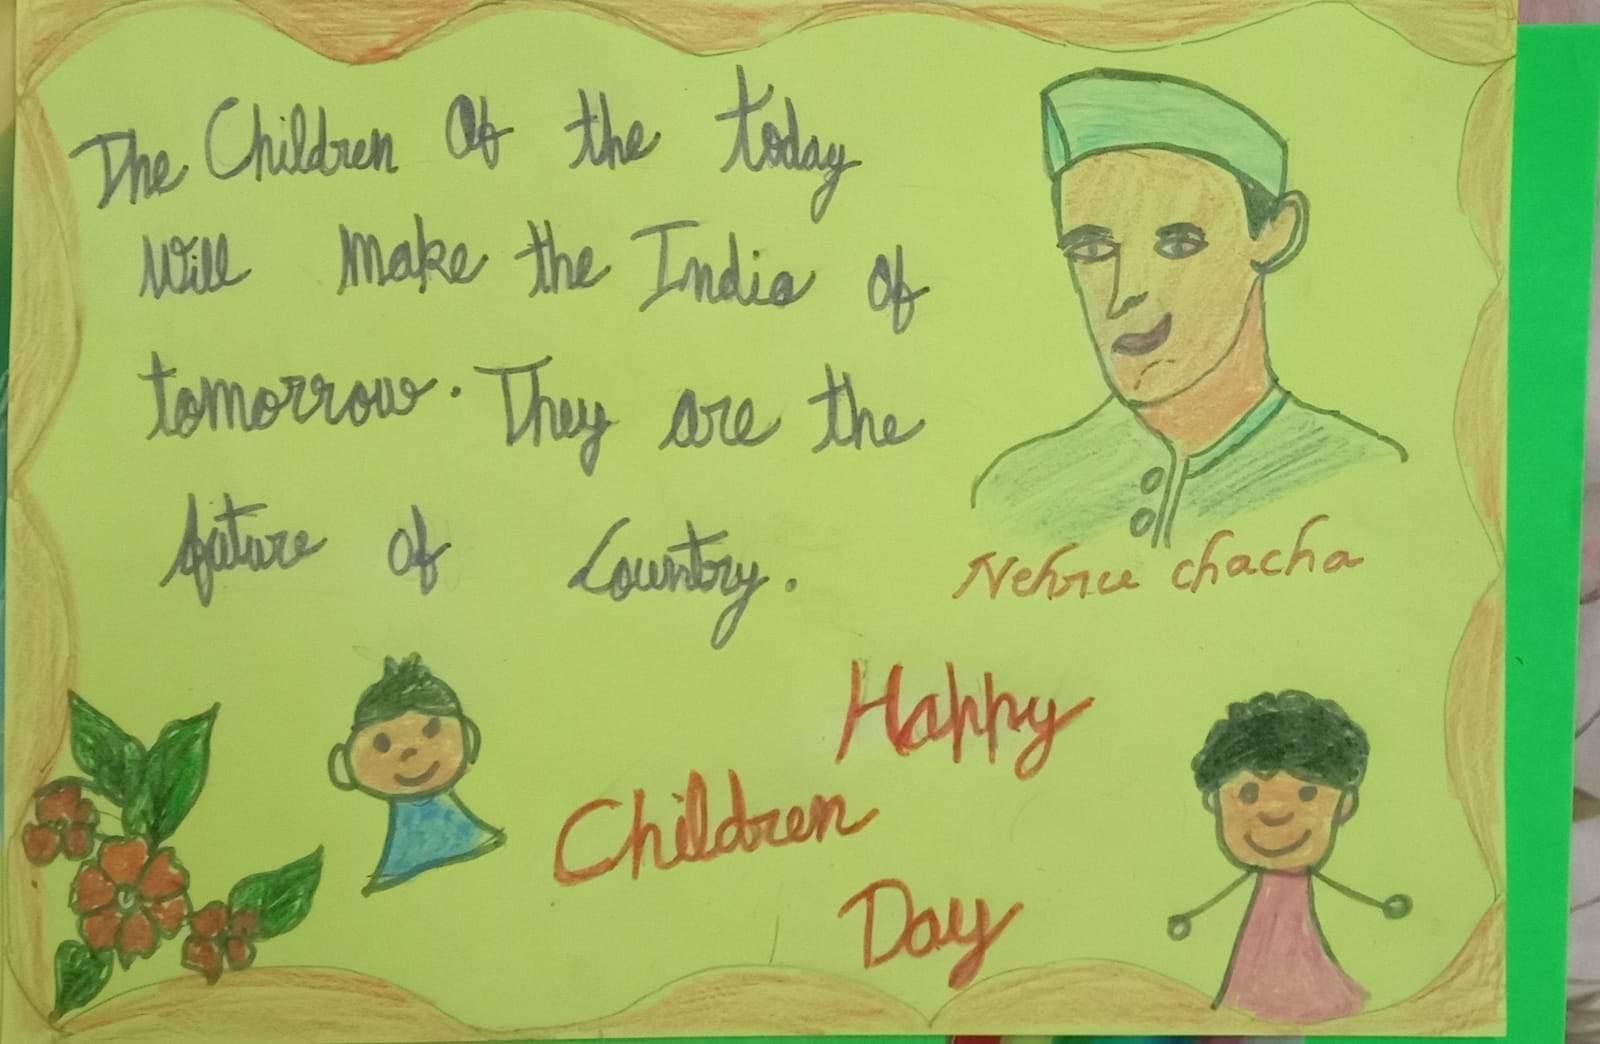 The Children Of the today
Will make the India of
tomorrow. They are the
future of Country.
Nehru chacha
Happy
Children
Day